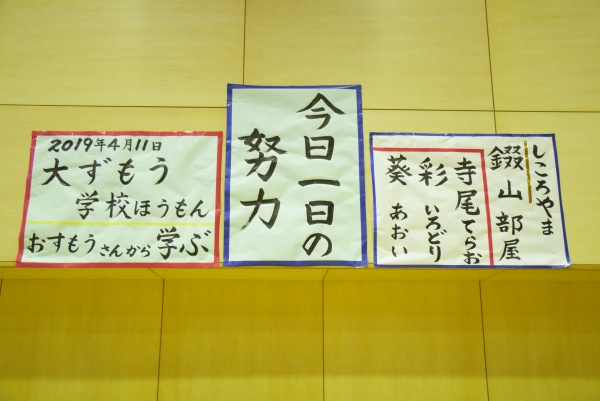 2019年4月11日
大ずもう
学校ほうもん
おすもうさんから学ぶ
今日一日の
努力
しころやま
錣山部屋
寺尾てらお
彩いろどり
葵あおい